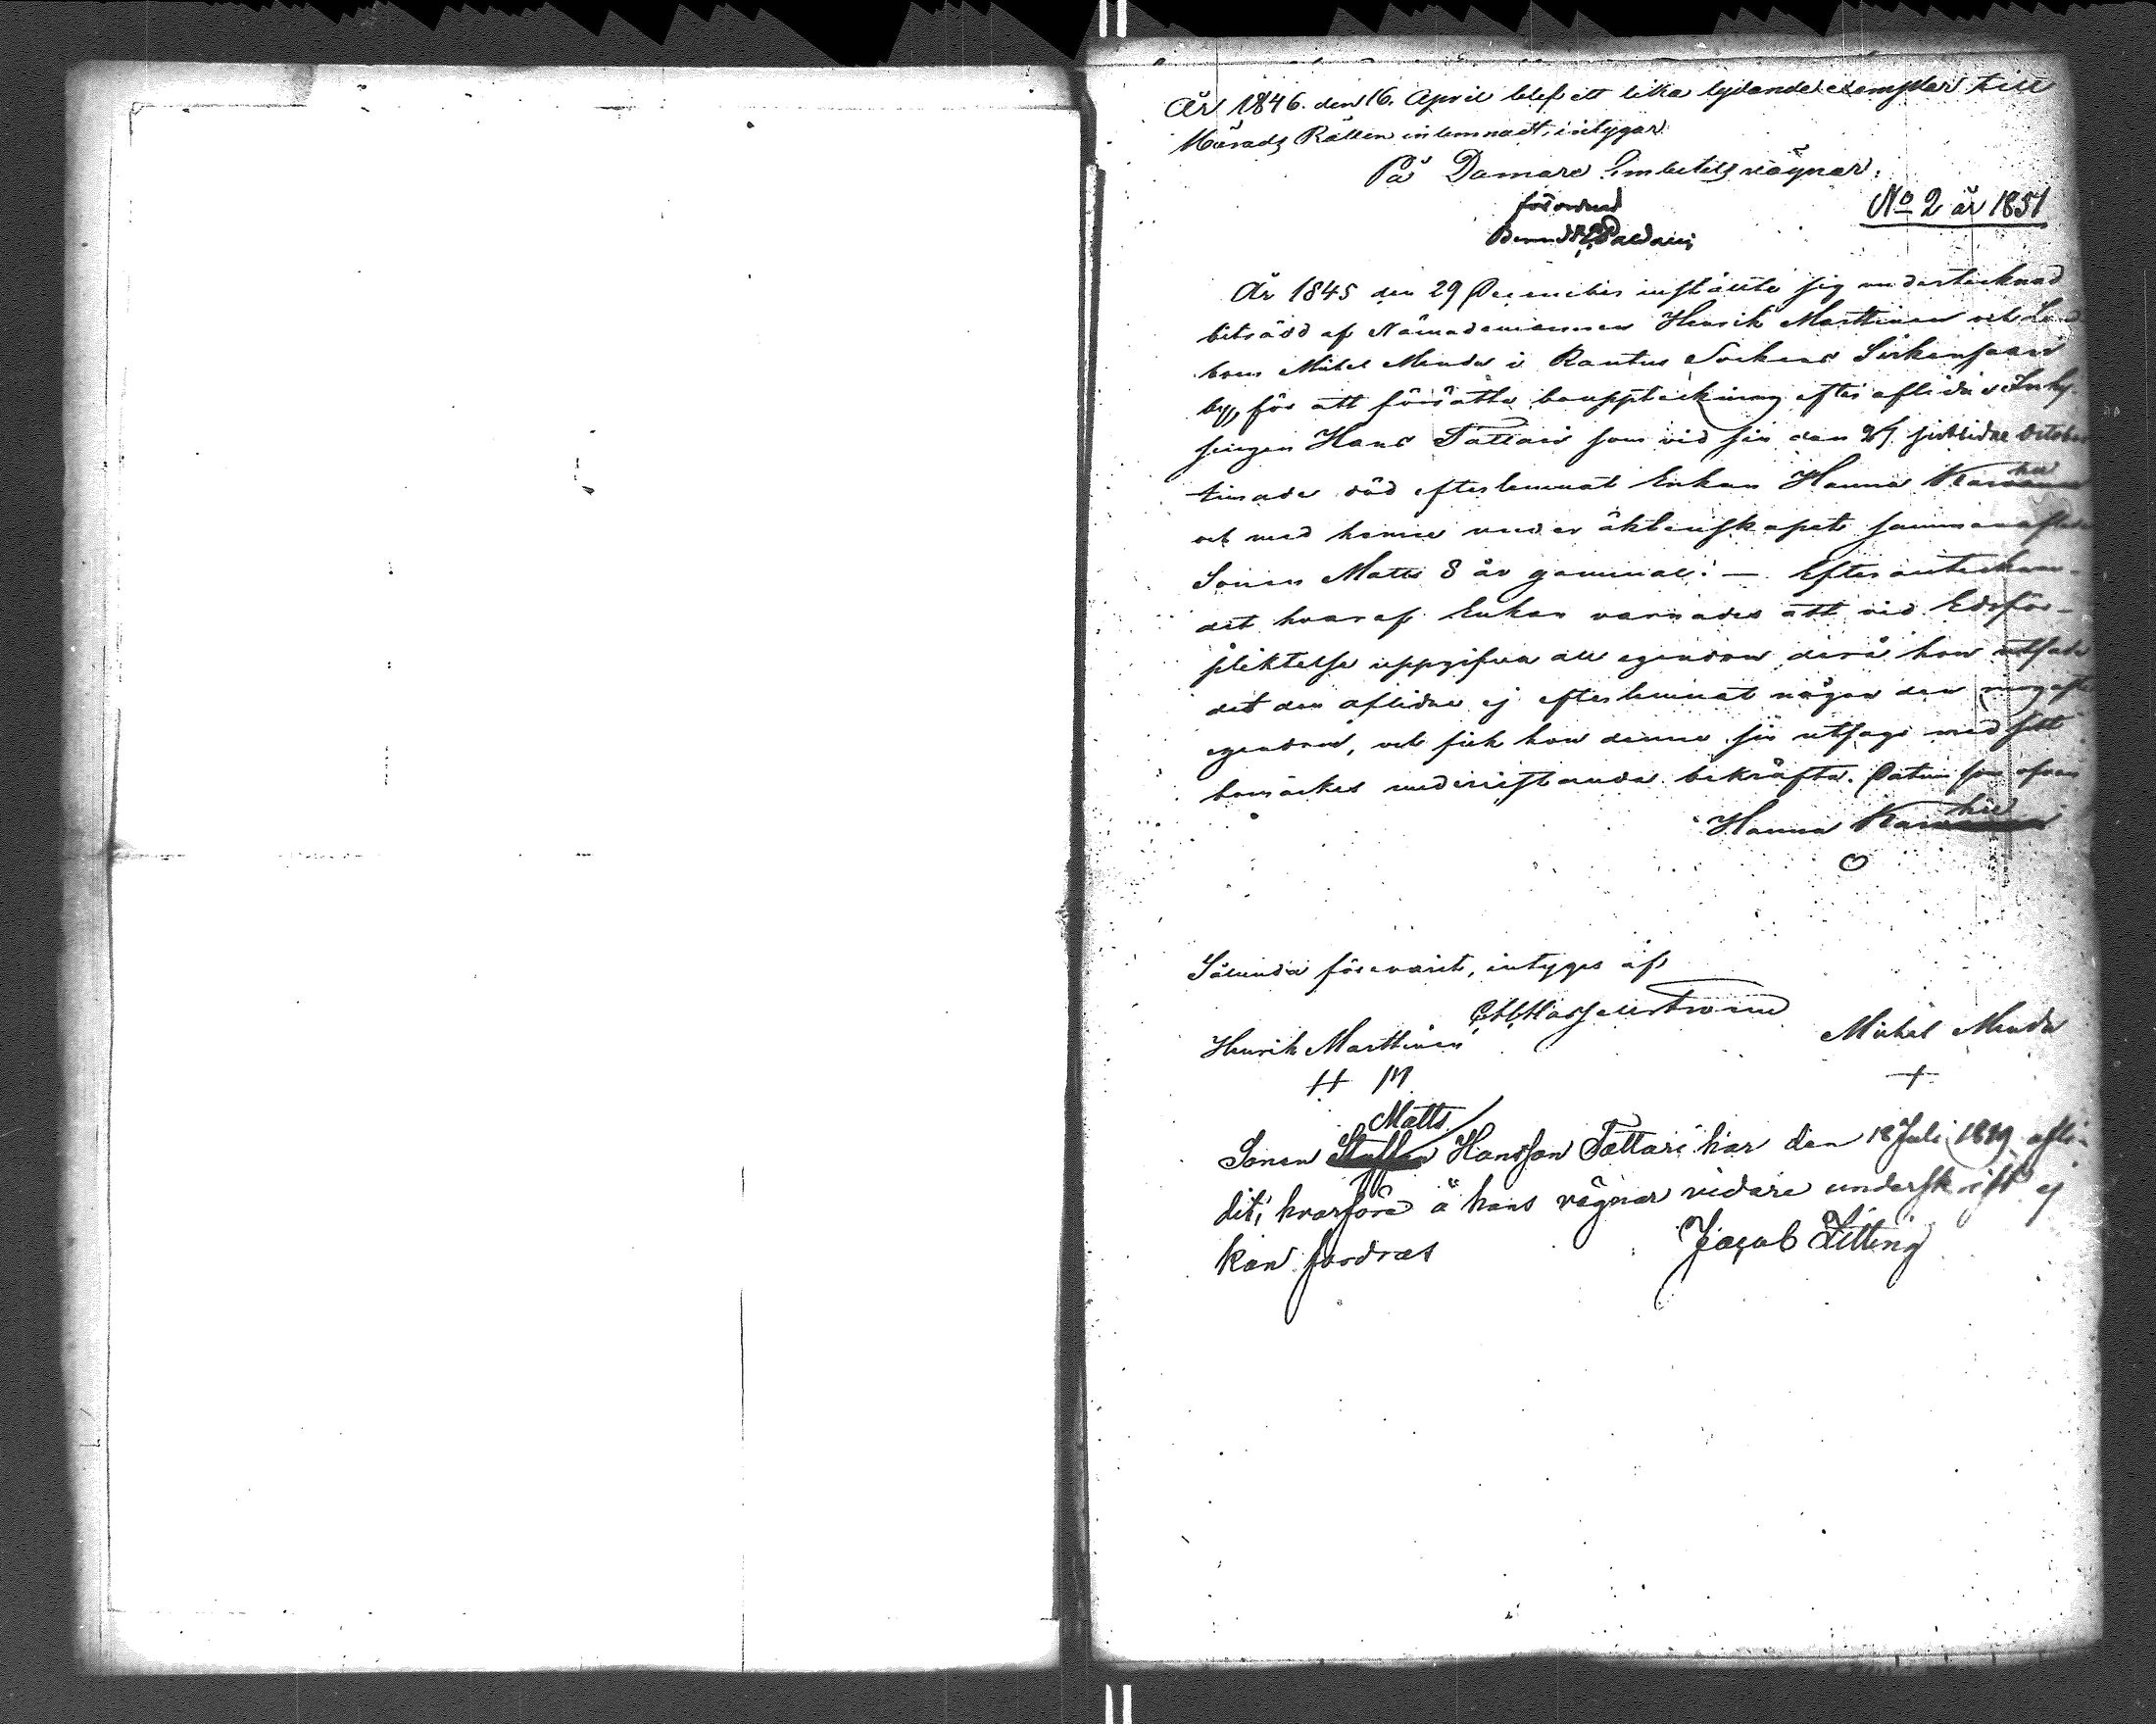 År 1846. den 16. April blef ett lika lydande exemplar till
Härads Rätten inlemnadt, intygar
På Domare Embetets vägnar,
förordnad
No 2 år 1851
År 1845 den 29 December inställte sig undertecknad
biträdd af Nämndemannen Henrik Marttinen och Land
bon Michel Mendu i Rautus Sockens Sirkensaari
by, för att författa bouppteckning efter aflidne Inhy-
singen Hans Tattari som vid sin den 27 sistlidne October
timade död efterlemnat Enkan Hanna Karvane hu
och med henne under äktenskapet sammanaflade
Sonen Matts 8 år gammal: — Efter antecknan-
det hvaraf Enkan varnades att vid Edsför-
pliktelse uppgifva all egendom, derå hon utsade
det den aflidne ej efterlemnat någon den ringaste
egendom, och fick hon denna sin utsago med sitt
bomärkes underristande bekräfta. Datum som ofvan
Hanna Karvane hu
Sålunda förevarit, intyges af
Henrik Marttinen
Michel Mendu
H M
+
Matts
Sonen Staffan Hansson Tattari har den 18 Juli 1849 afli-
dit, hvarföre å hans vägnar vidare underskrift ej
kan fordras
Jacob Litting